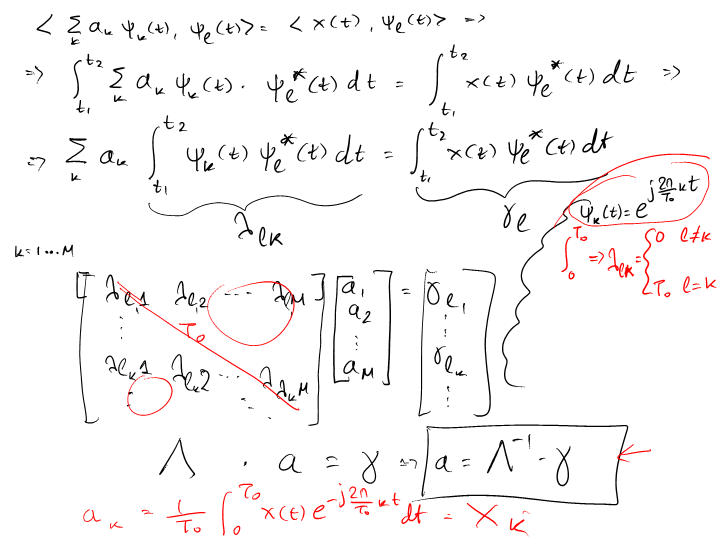 < Σ_k a_k ψ_k(t), ψ_e(t)> = < x(t), ψ_e(t)> =>
=> ∫_{t_1}^{t_2} Σ_k a_k ψ_k(t) · ψ_e^*(t) dt = ∫_{t_1}^{t_2} x(t) ψ_e^*(t) dt =>
=> Σ_k a_k ∫_{t_1}^{t_2} ψ_k(t) ψ_e^*(t) dt = ∫_{t_1}^{t_2} x(t) ψ_e^*(t) dt
λ_{ek} γ_e
ψ_k(t) = e^{j \frac{2π}{T_0} k t}
∫_0^{T_0} => λ_{ek} = { 0 e≠k
T_0 e=k
k=1...M
[ λ_{e,1} λ_{e,2} ... λ_{,M} ] [ a_1 = [ γ_{e_1}
T_0 a_2
⋮ ⋮ ⋮
λ_{e_k 1} λ_{e_k 2} ... λ_{λ_k M} a_M ] γ_{e_k}
⋮ ]
Λ · a = γ => a = Λ^{-1} · γ
a_k = \frac{1}{T_0} ∫_0^{T_0} x(t) e^{-j \frac{2π}{T_0} k t} dt = X_k